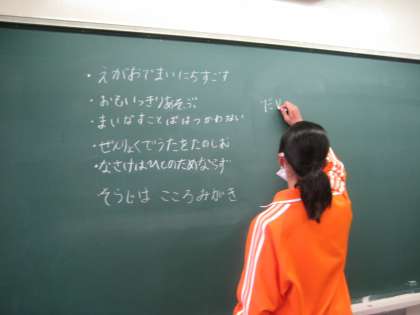 ・えがおでまいにちすごす
・おもいっきりあそぶ
・まいなすことばはつかわない
・ぜんりょくでうたをたのしむ
・なさけはひとのためならず
そうじは こころみがき
だい